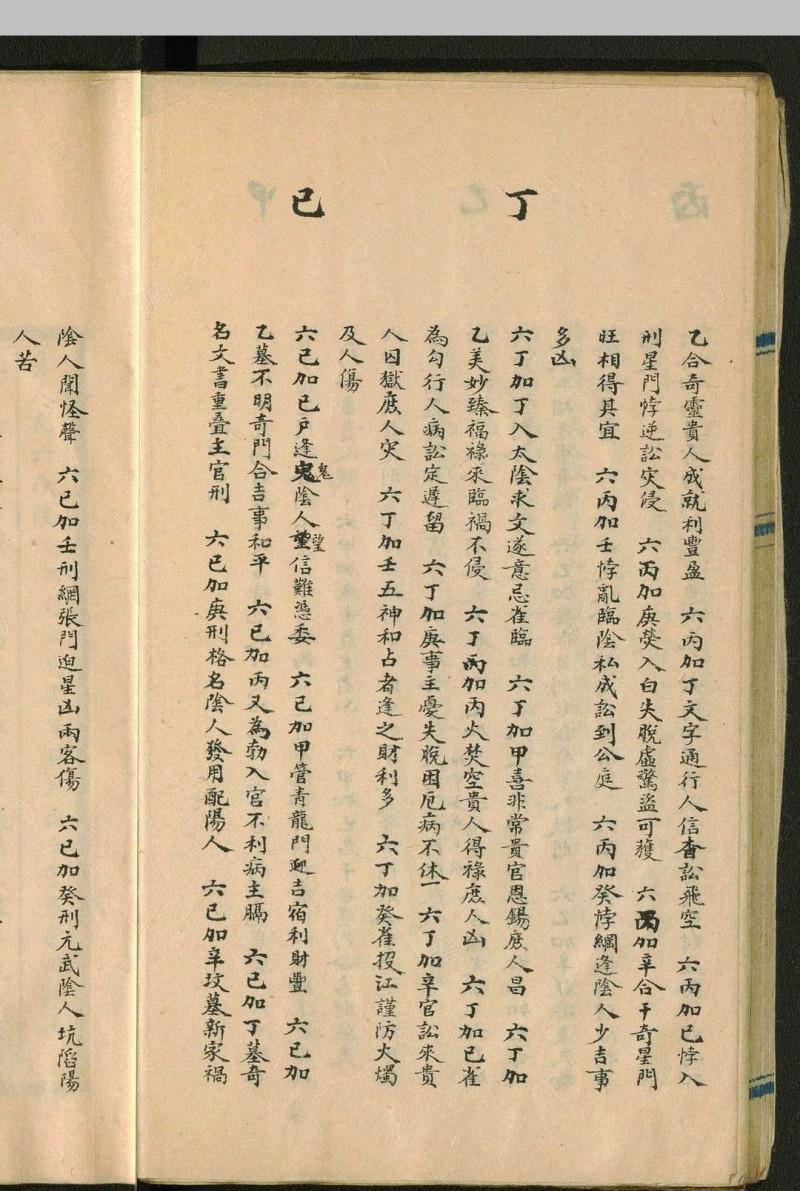 乙合奇靈貴人成就利豐盈　六丙加丁文字通行人信杳訟飛空　六丙加已悖入
刑星門悖逆訟灾侵　六丙加庚熒入白失脫虛驚盜可獲　六丙加辛合干奇星門
旺相得其宜　六丙加壬悖亂臨陰私成訟到公庭　六丙加癸悖網逢陰人少吉事
多凶
丁
六丁加丁入太陰求文遂意忌雀臨　六丁加甲喜非常貴官恩錫庶人昌　六丁加
乙美妙臻福祿來臨禍不侵　六丁丙加丙火焚空貴人得祿庶人凶　六丁加已雀
為勾行人病訟定遲留　六丁加庚事主憂失脫困厄病不休　六丁加辛官訟來貴
人囚獄庶人灾　六丁加壬五神和占者逢之財利多　六丁加癸雀投江謹防火燭
及人傷
已
六已加已戶逢鬼陰人望信難憑委　六已加甲管青龍門迎吉宿利財豐　六已加
乙墓不明奇門合吉事和平　六已加丙又為勃入官不利病主膈　六已加丁墓奇
名文書重叠主官刑　六已加庚刑格名陰人發用配陽人　六已加辛坟墓新家禍
陰人聞怪聲　六已加壬刑網張門迫星凶兩客傷　六已加癸刑元武陰人坑陷陽
人苦